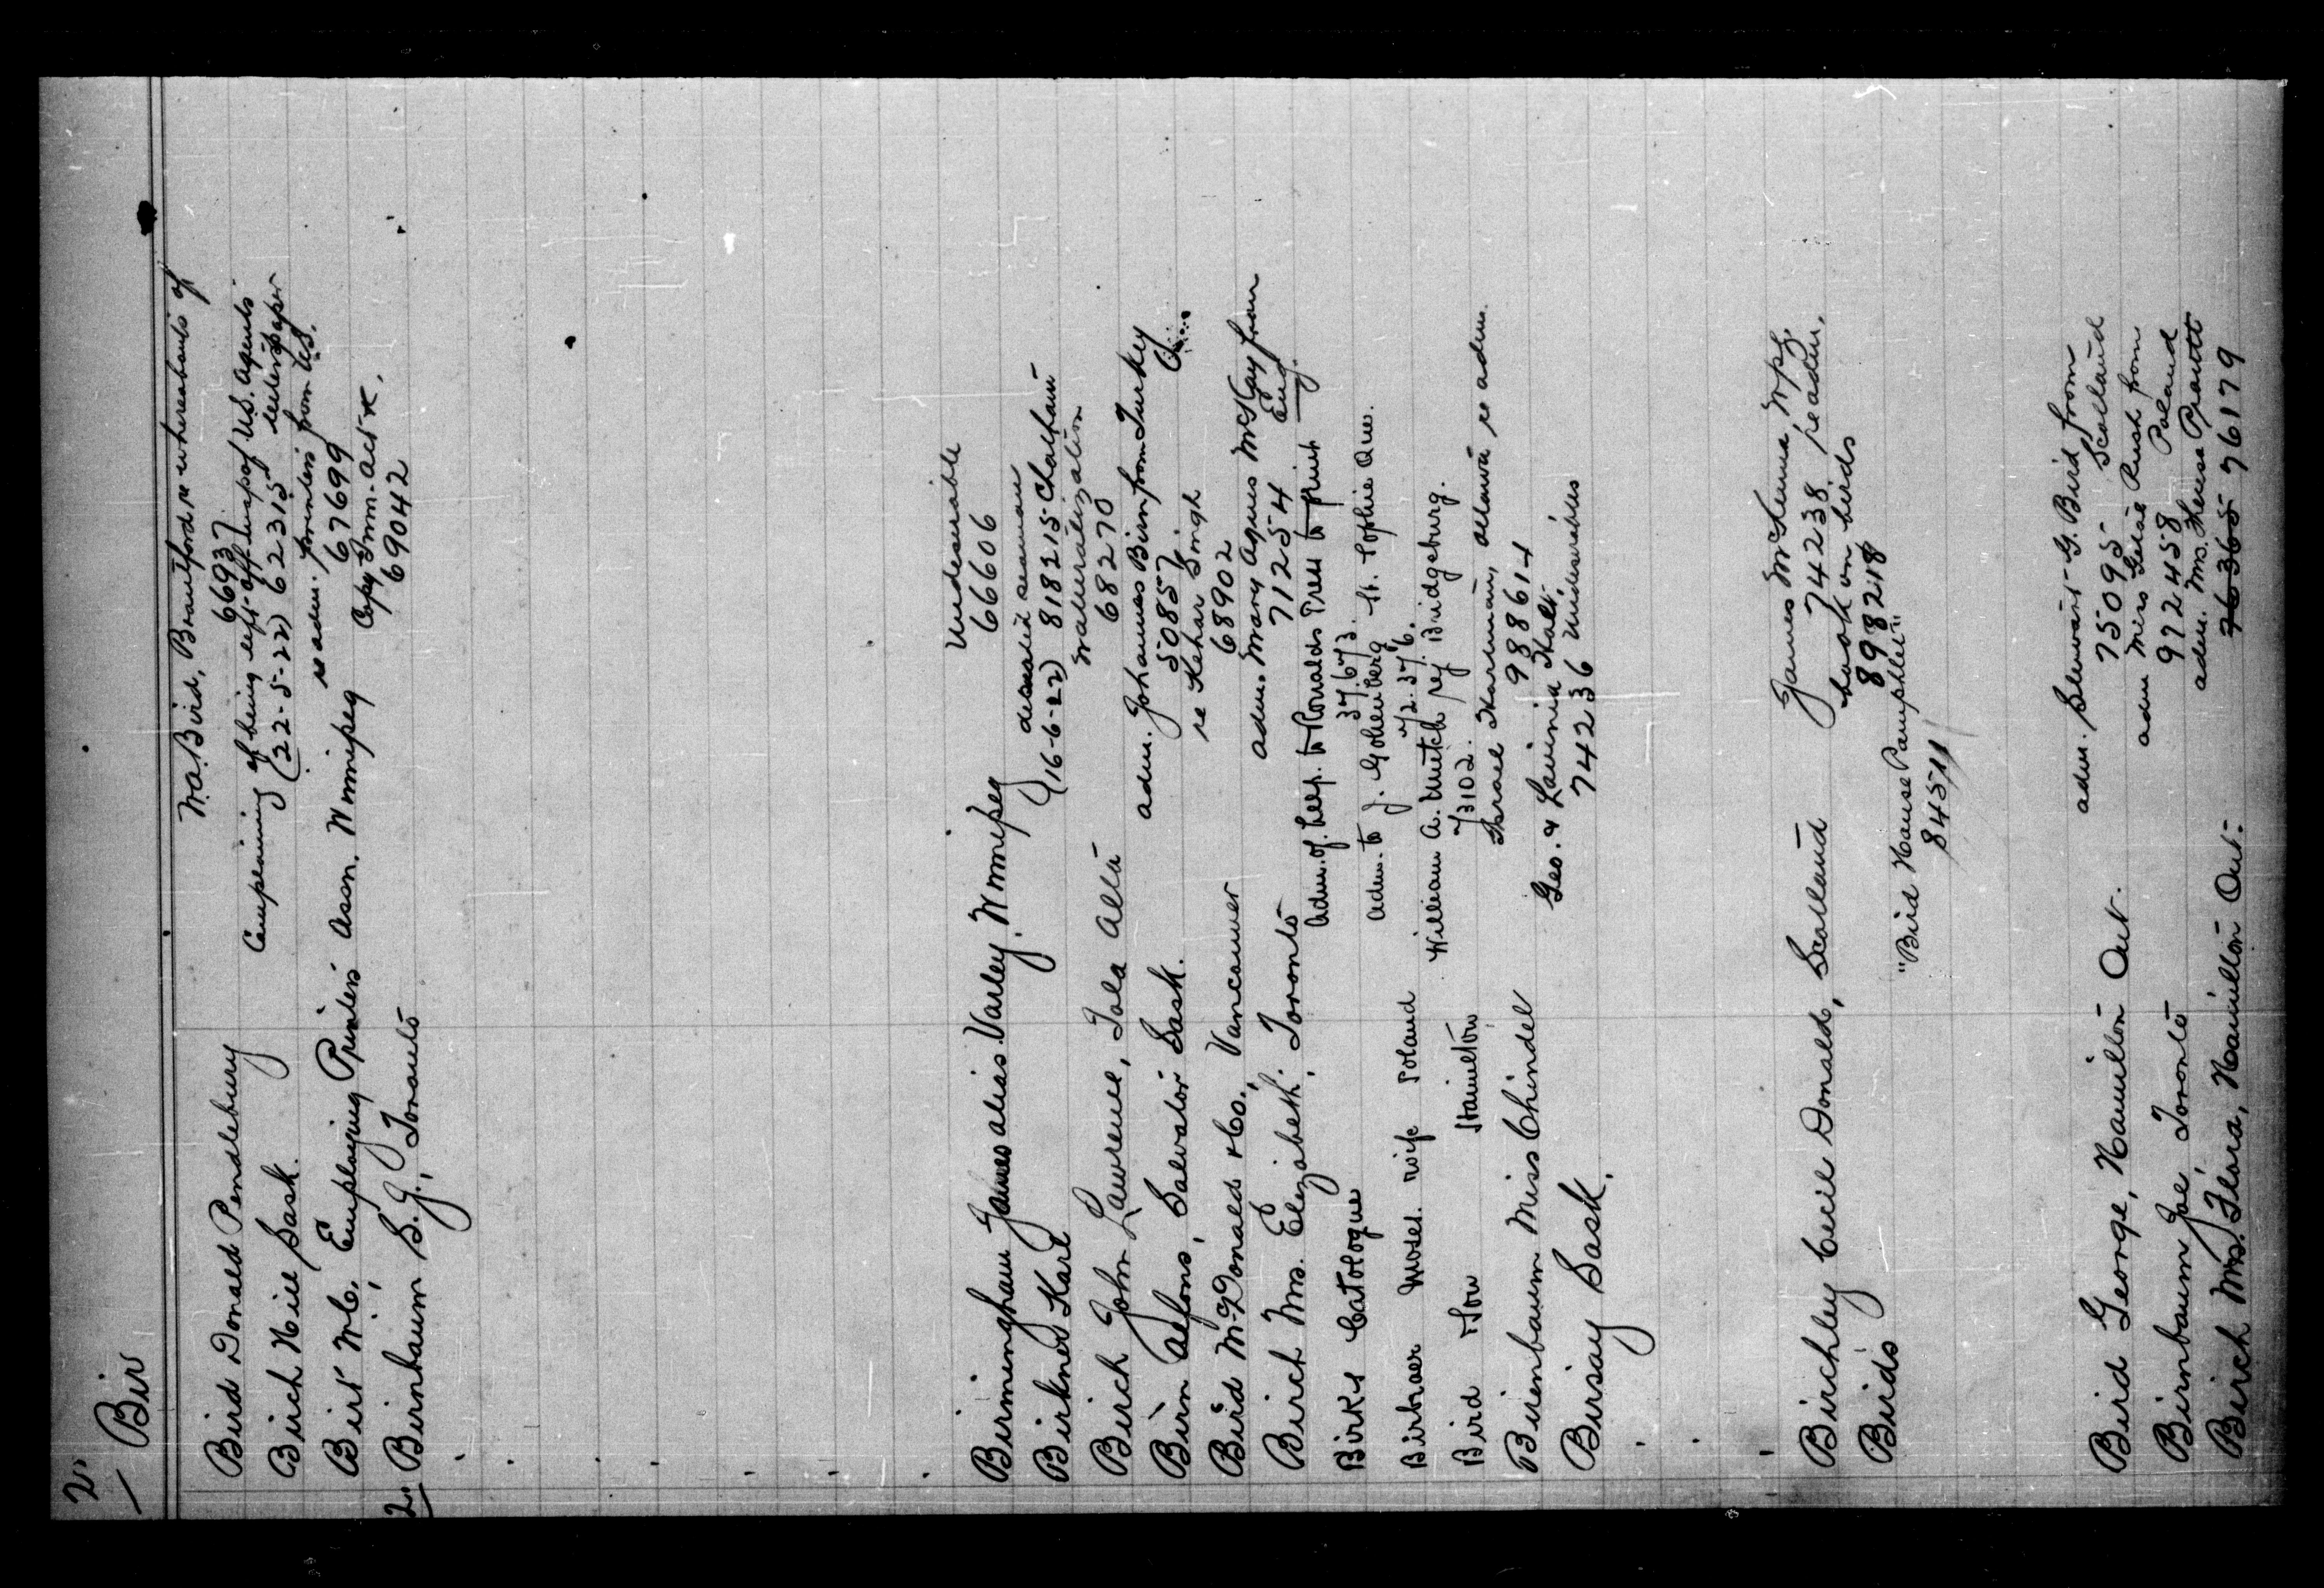 2.
Bir
W.A. Bird, Brantford re whereabouts of
Bird Donald Pendlebury 66937
Complaining of being left off maps of U.S. Agents
Birch Hill Sask. (22-5-22) 62315
re adm. printers from U.S.
Birt W.C. Employing Printers Assn. Winnipeg 67699
Copy Imm. Act
2. Birnbaum S.J., Toronto 69042
Undesirable
Birmingham James alias Varley. Winnipeg 66606
deserted seaman
Birkner Karl (16-6-22) 818215 Chatham
naturalization
Birch John Lawrence, Iola Alta 68270
adm. Johannes Birn from Turkey
Birn Alfons, Salvador Sask. 50857
re Kehar Singh
Bird McDonald & Co., Vancouver 68902
adm. Mary Agnes McKay from Eng.
Birch Mrs. Elizabeth, Toronto 71254
Adm. of help. to Ronalds Press to print
Birks Catologue 37673.
Adm. to J. Golienberg St. Sophie Que.
Birbraer Mosel. wife Poland 72376.
William A. Mutch rej. Bridgeburg.
Bird & Son Hamilton 73102.
Israel Harlman, Ottawa re adm.
Birenbaum Miss Chindel 988614
Geo. & Lavinia Hall
Birsay Sask. 74236 Undesirables
James McKenna Wpg.
Birchley Cecil Donald, Scotland 74238 re adm.
book on birds
Birds 898218
"Bird House Pamphlet"
84511
adm. Stewart G. Bird from Scotland
Bird George, Hamilton Ont. 75095
adm Miss Gelsie Rush from Poland
Birnbaum Joe, Toronto 992458
adm. Mrs. Therese Pratt
Birch Mrs. Flora, Hamilton Ont. 76365 76179